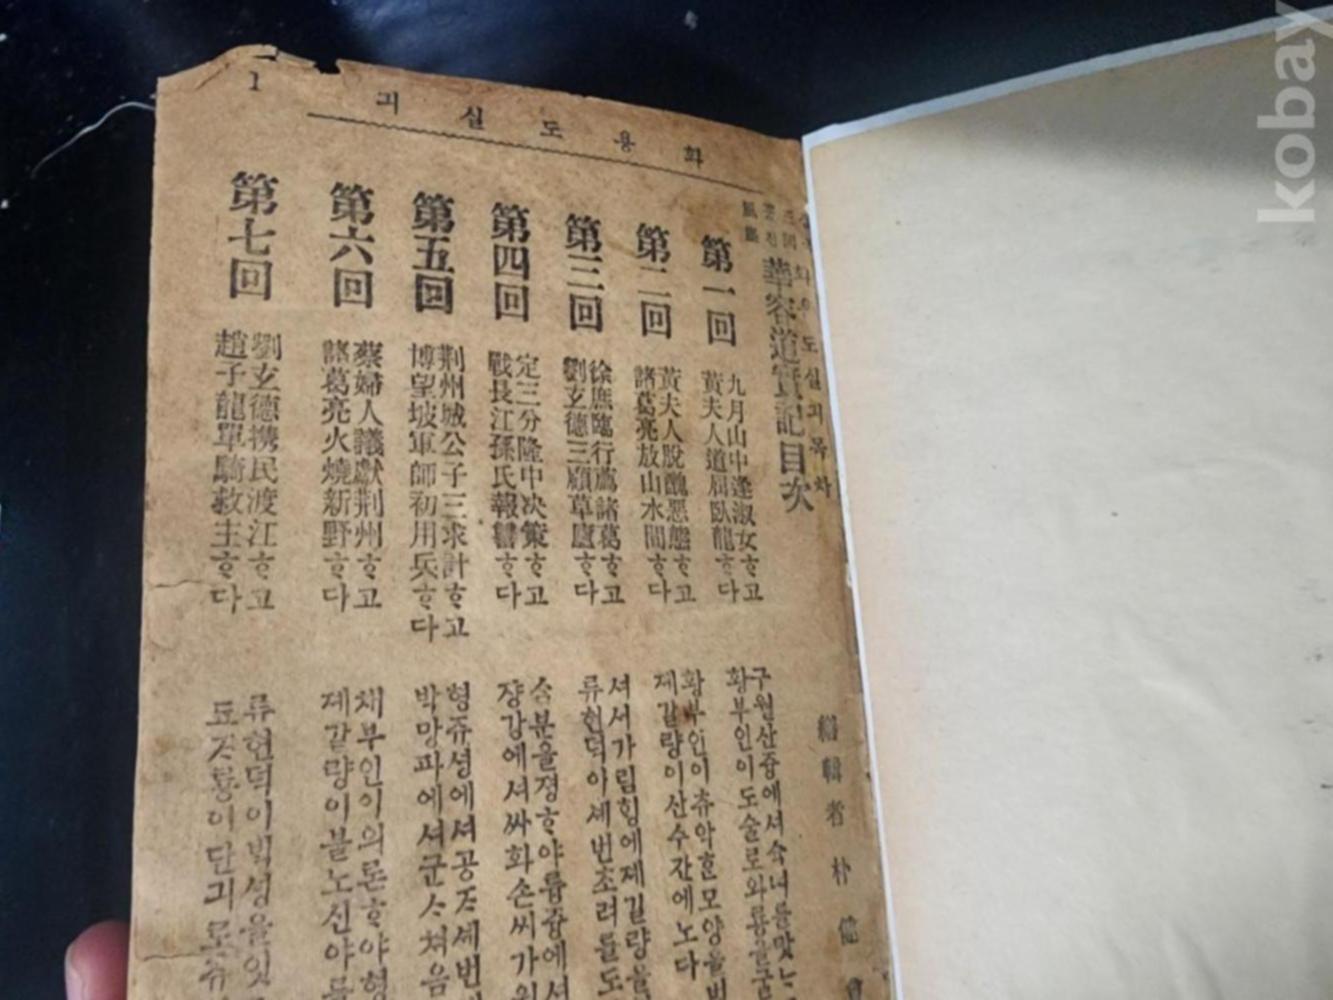 화용도실긔
1
華容道實記目次
第一回
九月山中逢淑女ᄒᆞ고
黃夫人道屈臥龍ᄒᆞ다
구월산즁에셔슉녀를맛
황부인이도술로와룡을굴
第二回
黃夫人脫醜惡態ᄒᆞ고
諸葛亮放山水間ᄒᆞ다
황부인이츄악ᄒᆞᆫ모양을버
제갈량이산수간에노다
第三回
徐庶臨行薦諸葛ᄒᆞ고
劉玄德三顧草廬ᄒᆞ다
셔셔가림ᄒᆡᆼ에제갈량을
류현덕이세번초려를도
第四回
定三分隆中决策ᄒᆞ고
戰長江孫氏報讐ᄒᆞ다
삼분을졍ᄒᆞ야륭즁에셔
쟝강에셔싸화손씨가원
第五回
荆州城公子三求計ᄒᆞ고
博望坡軍師初用兵ᄒᆞ다
형쥬셩에셔공ᄌᆞ세번
박망파에셔군ᄉᆞ쳐음
第六回
蔡婦人議獻荆州ᄒᆞ고
諸葛亮火燒新野ᄒᆞ다
채부인이의론ᄒᆞ야형
제갈량이불노신야를
第七回
劉玄德携民渡江ᄒᆞ고
趙子龍單騎救主ᄒᆞ다
류현덕이ᄇᆡᆨ셩을잇
됴ᄌᆞ룡이단긔로쥬
編輯者 朴
kobay